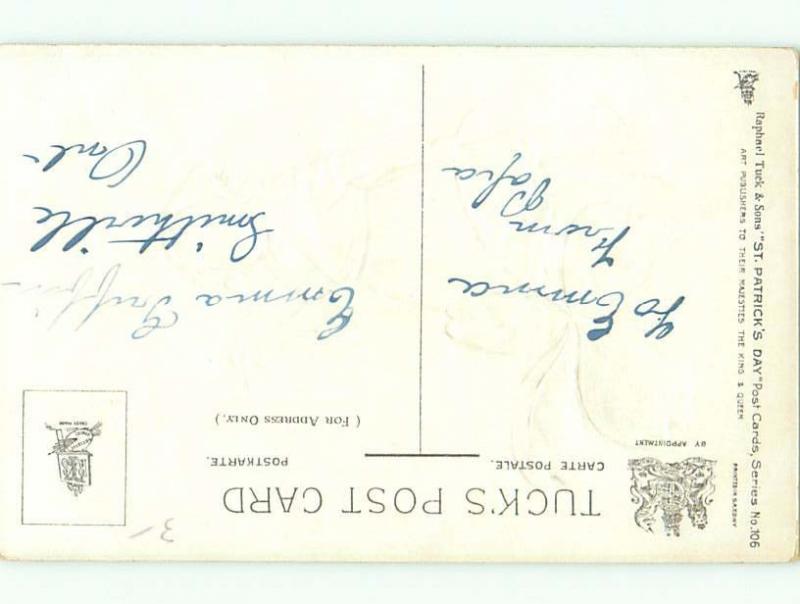 TUCK'S POST CARD
CARTE POSTALE.
POSTKARTE.
BY APPOINTMENT
( FOR ADDRESS ONLY. )
To Emma
From
Papa
Emma Griffin
Smithville
Ont-
Raphael Tuck & Sons' "ST. PATRICK'S DAY" Post Cards, Series No. 106
ART PUBLISHERS TO THEIR MAJESTIES THE KING & QUEEN
PRINTED IN SAXONY
TRADE MARK
3/-